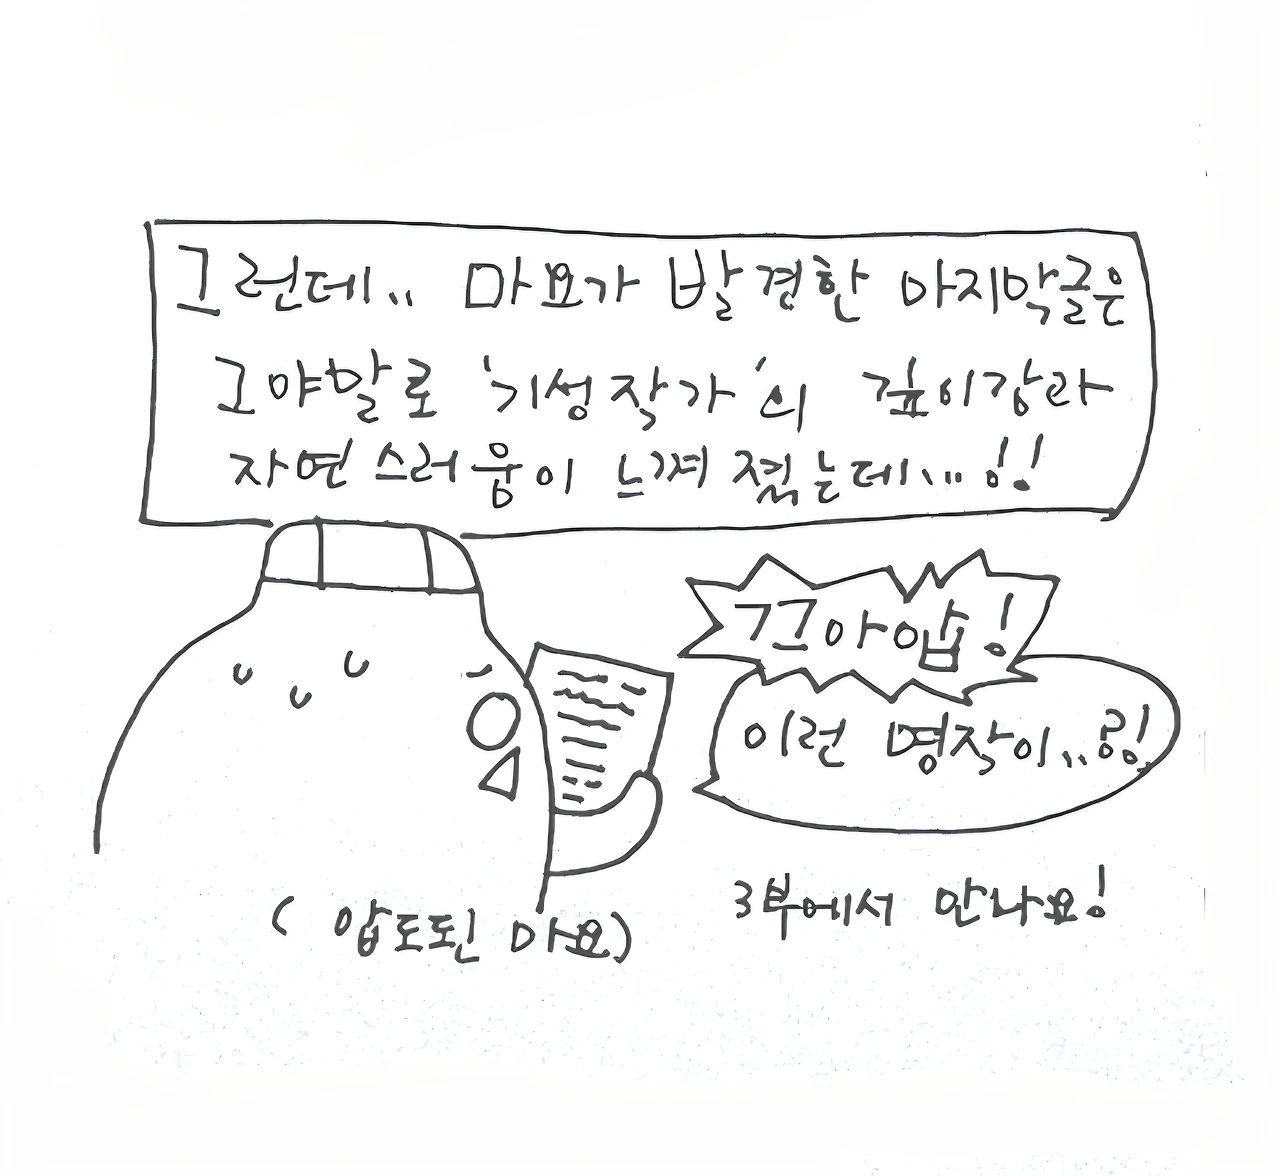 그런데.. 마요가 발견한 마지막글은
그야말로 '기성작가'의 깊이감과
자연스러움이 느껴졌는데....!!
끄아압!
이런 명작이..?!
3부에서 만나요!
( 압도된 마요)